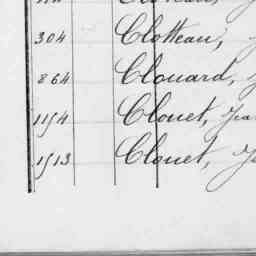 304 Clotteau,
864 Clouard,
1154 Clouet,
1513 Clouet,